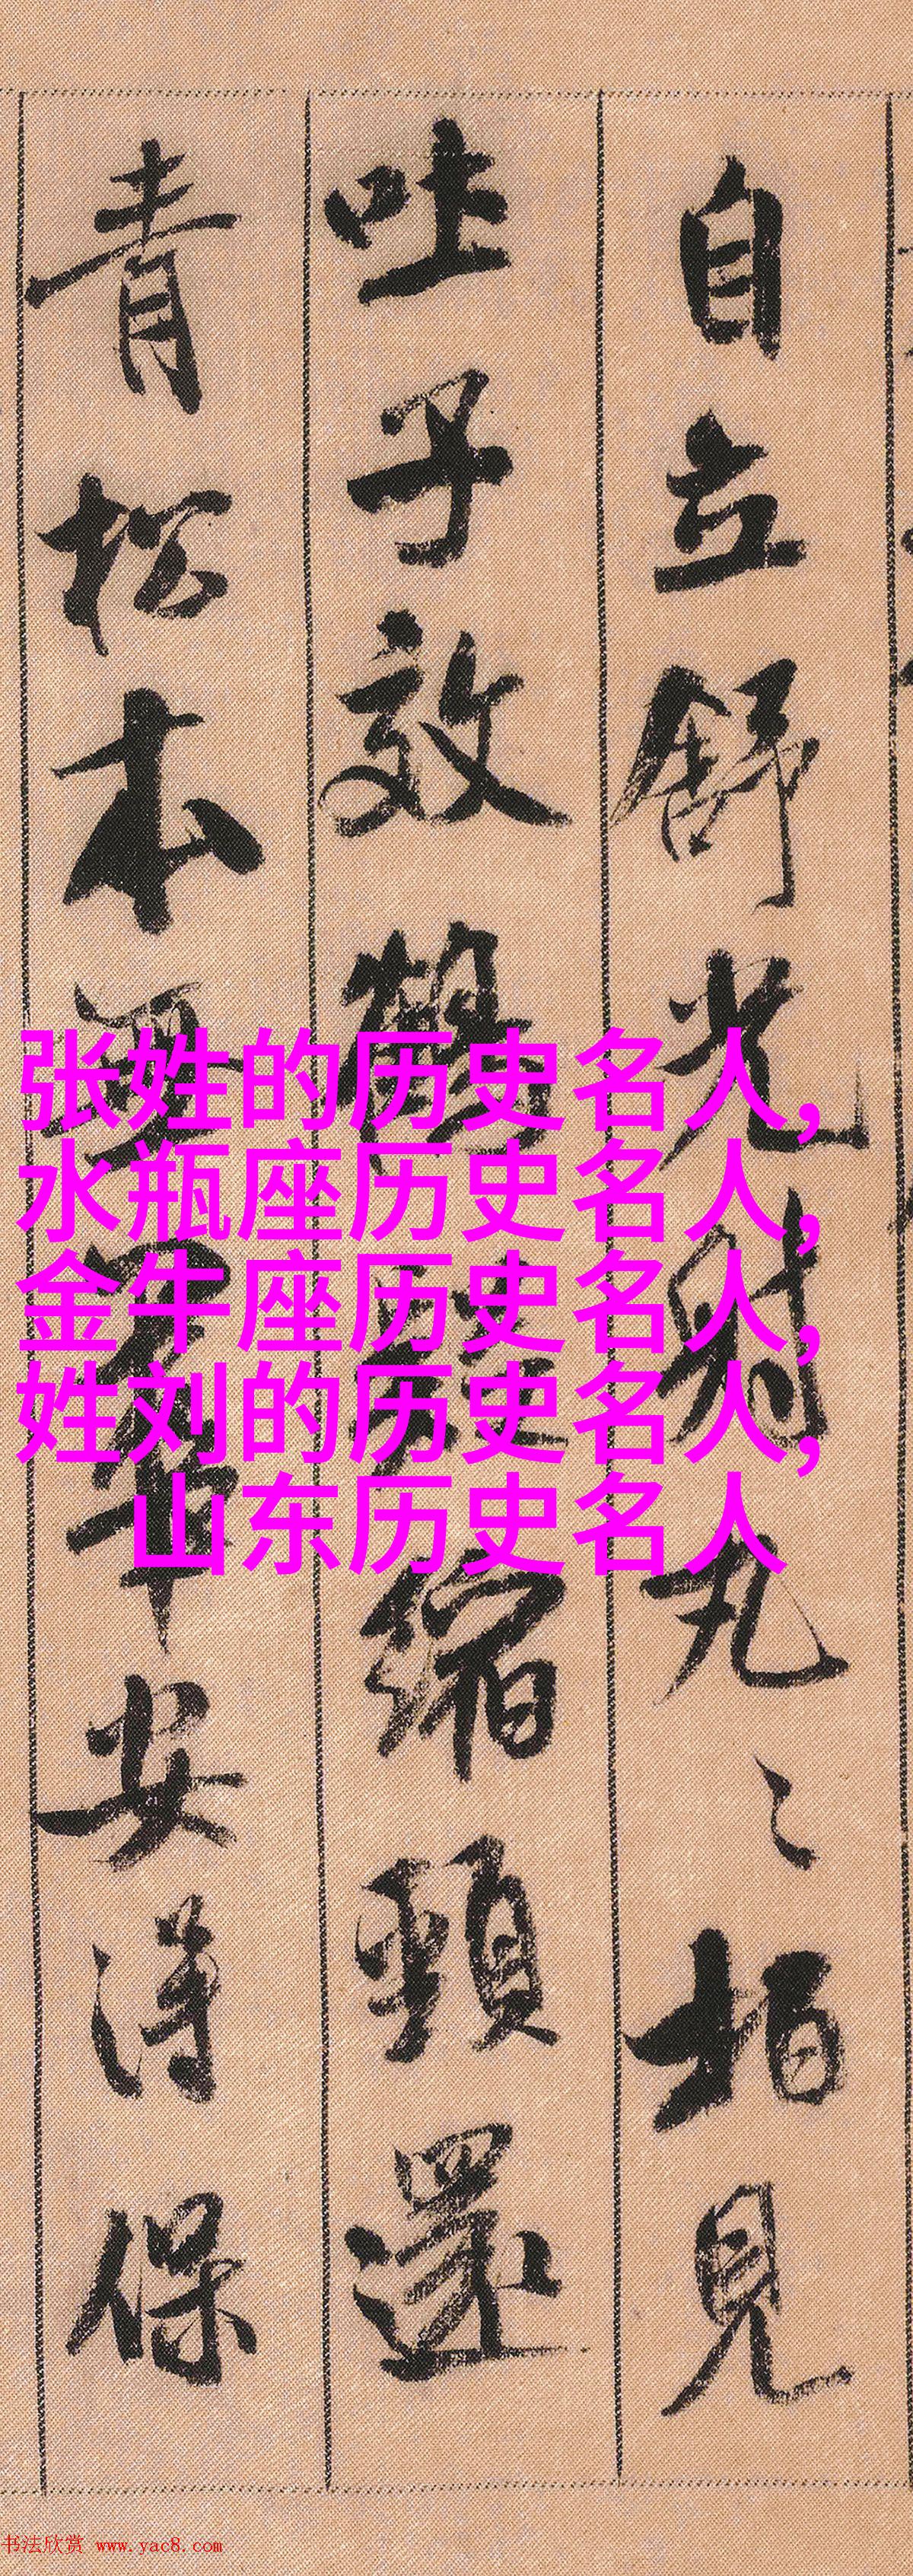 自立舒光射丸〻柏見
吐子效鶴縮頸還
青松本無華安得保
张姓的历史名人,
水瓶座历史名人,
金牛座历史名人,
姓刘的历史名人,
山东历史名人
书法欣赏 www.yac8.com